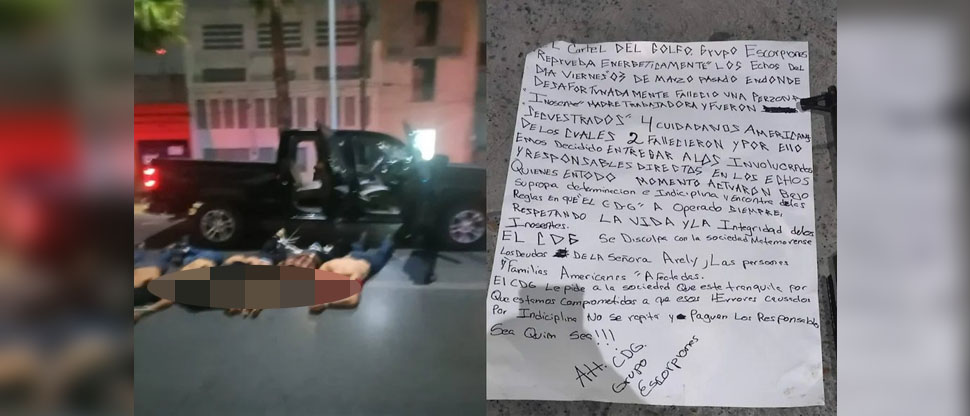 EL Cartel DEL GOLFO Grupo Escorpiones
REPRUEBA ENERGETICAMENTE" LOS Echos DEL
DIA VIERNES" 03 DE MARZO PASADO ENDONDE
DESAFORTUNADAMENTE FALLECIO UNA PERZONA
"Inosente" MADRE TRABAJADORA Y FUERON
SECUESTRADOS" 4 CUIDADANOS AMERICANOS
DE LOS CUALES 2 FALLECIERON Y POR ELLO
Emos Decidido ENTREGAR A LOS INVOLUCRADOS
Y RESPONSABLES DIRECTOS EN LOS ECHOS
QUIENES EN TODO MOMENTO ACTUARON BAJO
Su propa determinacion e Indiciplina y Encontra de las
Reglas EN QUE "EL CDG" A Operado SIEMPRE,
RESPETANDO LA VIDA Y LA Integridad de los
Inosentes.
EL CDG Se Disculpa con la sociedad Matamorense
Los Deudos DE LA SEÑORA Arely, y Las personas
y "Familias Americanas" Afectadas.
El CDG Le pide a la sociedad Que este tranquila por
Que estamos comprometidos a que esos "Errores causados
Por Indiciplina No se repita y Paguen Los Responsables
Sea Quien Sea!!!
Att. CDG.
Grupo
Escorpiones